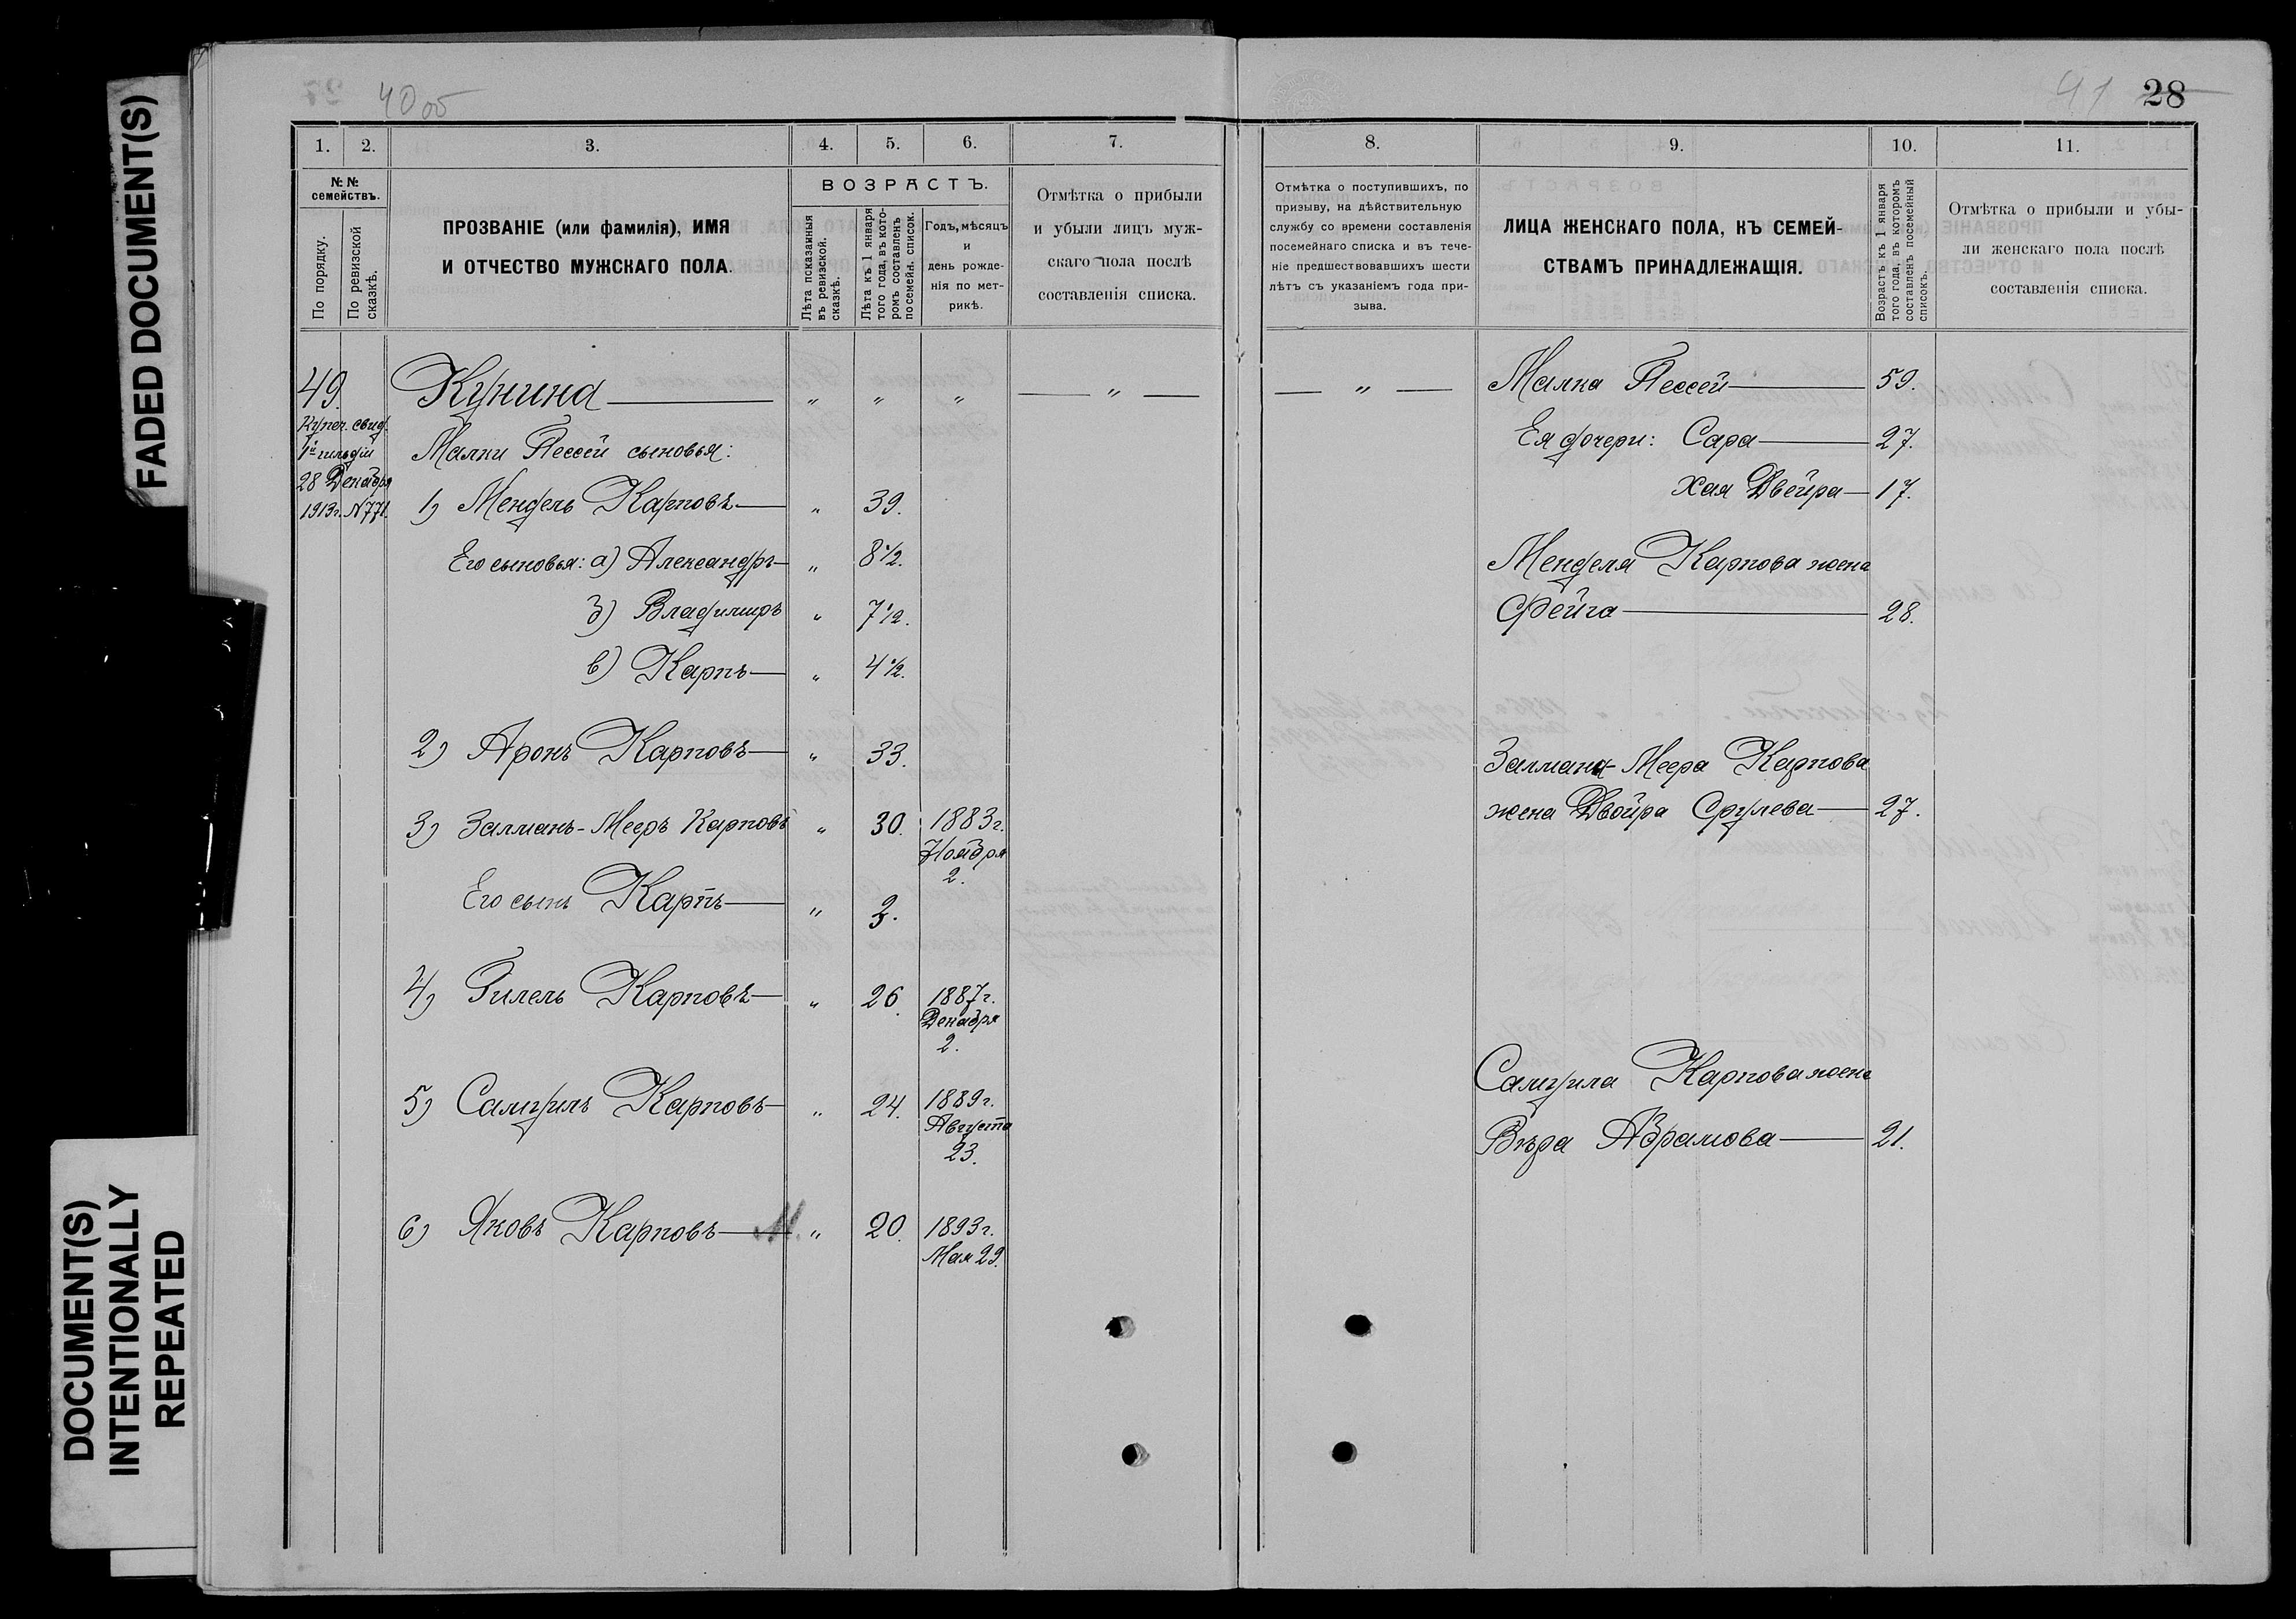 FADED DOCUMENT(S)
DOCUMENT(S)
INTENTIONALLY
REPEATED
40 об
1. 2. 3. 4. 5. 6. 7.
№№ семействъ.
По порядку.
По ревизской сказкѣ.
ПРОЗВАНІЕ (или фамилія), ИМЯ
И ОТЧЕСТВО МУЖСКАГО ПОЛА.
ВОЗРАСТЪ.
Лѣта показанныя въ ревизской сказкѣ.
Лѣта къ 1 января того года, въ котором составленъ посемейн. список.
Годъ, мѣсяцъ
и
день рожде-
нія по мет-
рикѣ.
Отмѣтка о прибыли
и убыли лицъ муж-
скаго пола послѣ
составленія списка.
49. Кунина — " " " — " —
Купеч. свид.
1й гильдіи
28 Декабря
1913г. N 771.
Малки Пессей сыновья:
1) Мендель Карповъ — " 39.
Его сыновья: а) Александръ — " 8 1/2.
б) Владимиръ " 7 1/2.
в) Карпъ — " 4 1/2.
2) Аронъ Карповъ — " 33.
3) Залманъ-Мееръ Карповъ " 30. 1883г.
Ноября
2.
Его сынъ Карпъ — " 3.
4) Гилель Карповъ — " 26. 1887г.
Декабря
2.
5) Самуилъ Карповъ — " 24. 1889г.
Августа
23.
6) Яковъ Карповъ — М. " 20. 1893г.
Мая 29.
41 28
8. 9. 10. 11.
Отмѣтка о поступившихъ, по
призыву, на дѣйствительную
службу со времени составленія
посемейнаго списка и въ тече-
ніе предшествовавшихъ шести
лѣтъ съ указаніемъ года при-
зыва.
ЛИЦА ЖЕНСКАГО ПОЛА, КЪ СЕМЕЙ-
СТВАМЪ ПРИНАДЛЕЖАЩІЯ.
Возрастъ къ 1 января
того года, въ которомъ
составленъ посемейный
списокъ.
Отмѣтка о прибыли и убы-
ли женскаго пола послѣ
составленія списка.
— " — Малка Пессей — 59.
Ея дочери: Сара — 27.
Хая Двейра — 17.
Менделя Карпова жена
Фейга — 28.
Залмана-Меера Карпова
жена Двойра Срулева — 27.
Самуила Карпова жена
Вѣра Абрамова — 21.